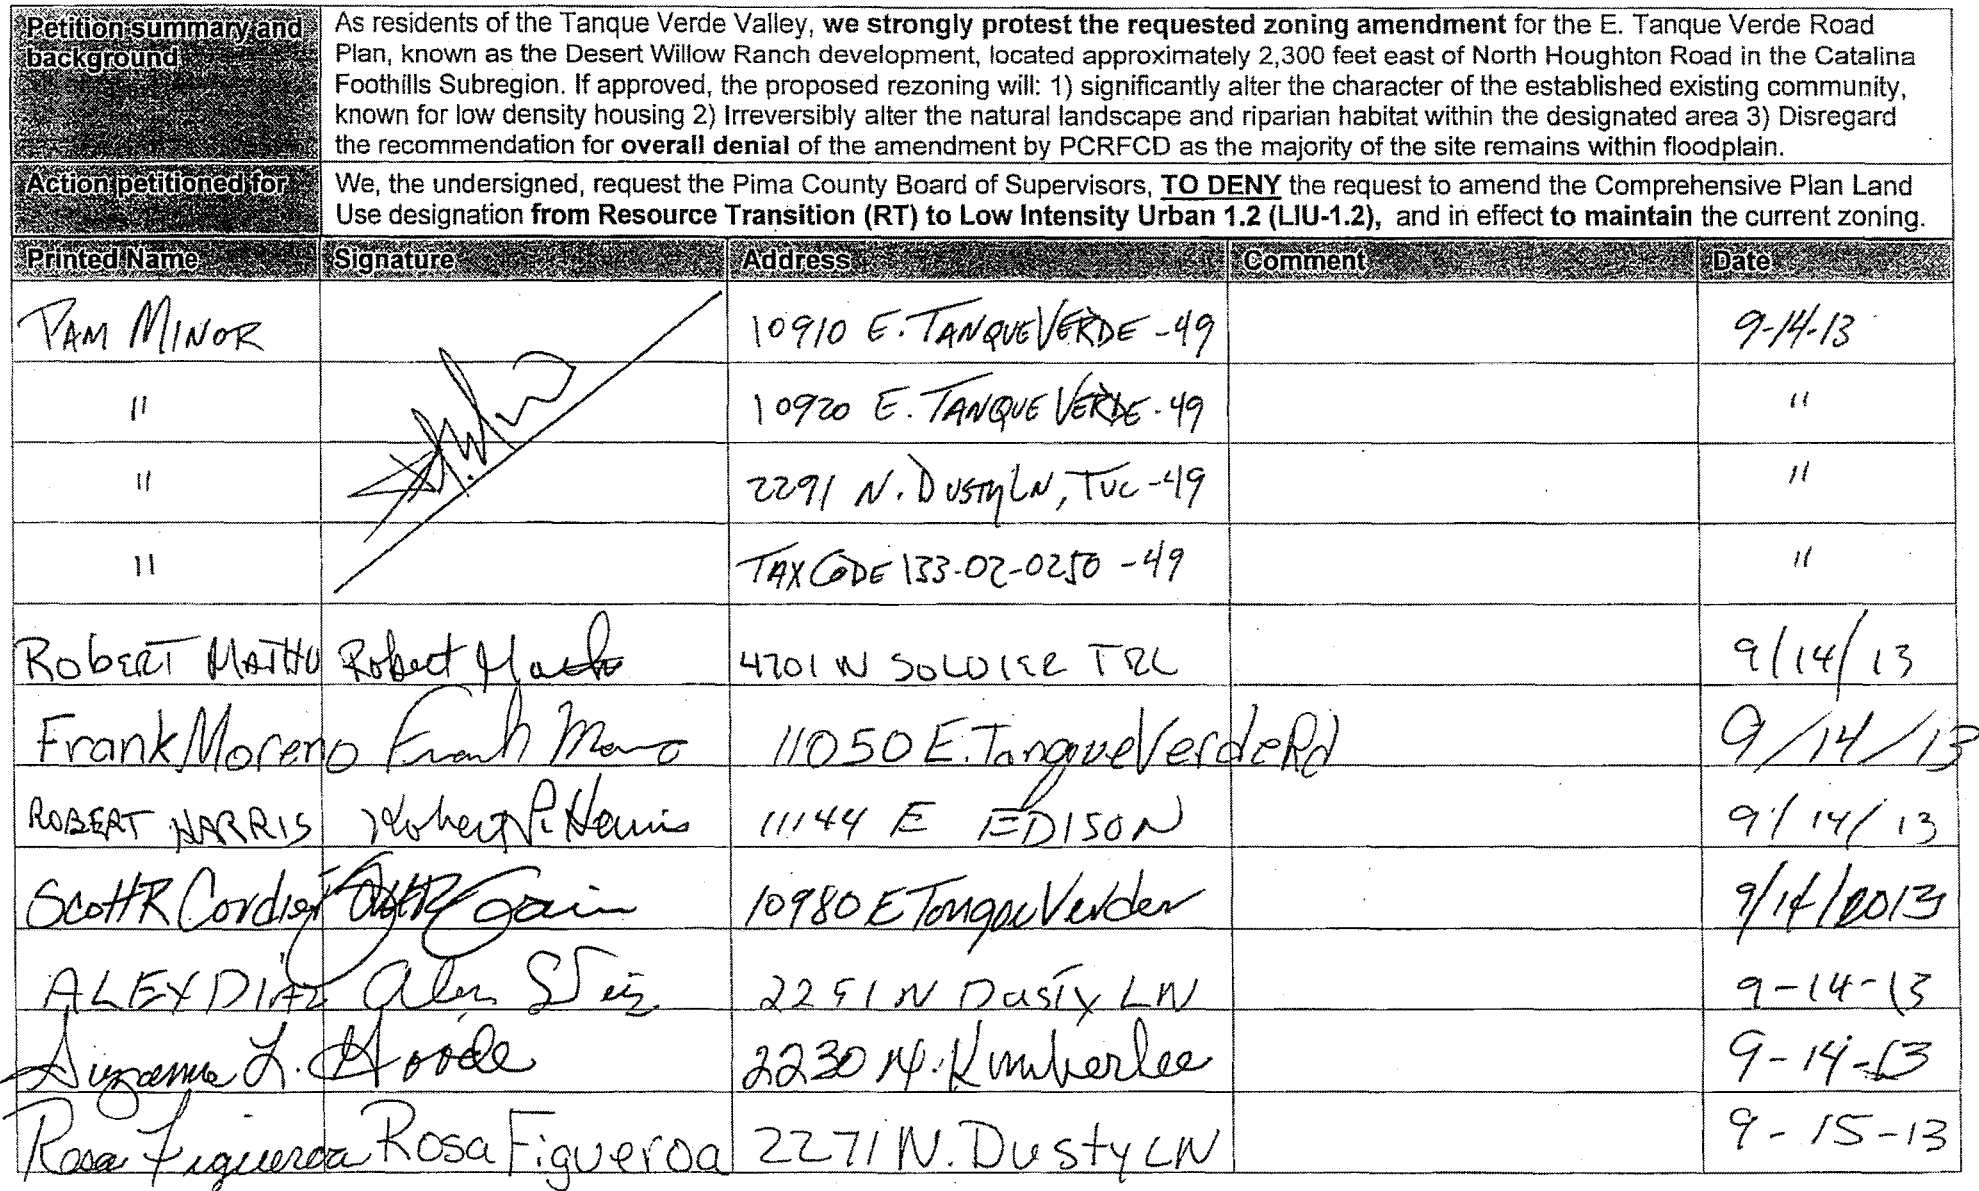 Petition summary and background
As residents of the Tanque Verde Valley, we strongly protest the requested zoning amendment for the E. Tanque Verde Road
Plan, known as the Desert Willow Ranch development, located approximately 2,300 feet east of North Houghton Road in the Catalina
Foothills Subregion. If approved, the proposed rezoning will: 1) significantly alter the character of the established existing community,
known for low density housing 2) Irreversibly alter the natural landscape and riparian habitat within the designated area 3) Disregard
the recommendation for overall denial of the amendment by PCRFCD as the majority of the site remains within floodplain.
Action petitioned for
We, the undersigned, request the Pima County Board of Supervisors, TO DENY the request to amend the Comprehensive Plan Land
Use designation from Resource Transition (RT) to Low Intensity Urban 1.2 (LIU-1.2), and in effect to maintain the current zoning.
Printed Name Signature Address Comment Date
PAM MINOR 10910 E. TANQUE VERDE -49 9-14-13
" 10920 E. TANQUE VERDE - 49 "
" 2291 N. DUSTY LN, TUC -49 "
" TAX CODE 133-02-0250 -49 "
ROBERT MATHU Robert 4701 N SOLDIER TRL 9/14/13
Frank Moreno Frank Moreno 11050 E. Tanque Verde Rd 9/14/13
ROBERT HARRIS Robert P. Harris 11144 E EDISON 9/14/13
Scott R Cordier 10980 E Tanque Verde 9/14/2013
ALEX DIAZ Alex Diaz 2291 N Dusty LN 9-14-13
Suzanne L. Goode 2230 N. Kimberlee 9-14-13
Rosa Figueroa Rosa Figueroa 2271 N. Dusty LN 9-15-13